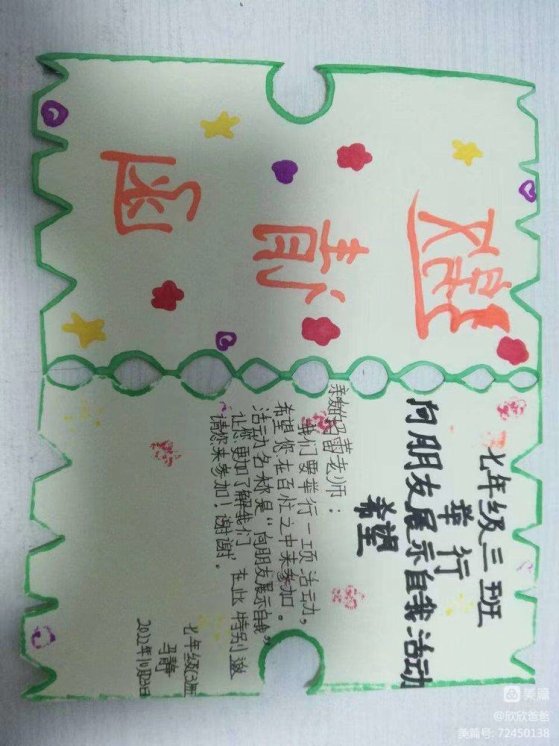 邀
请
函
七年级三班
举行
向朋友展示自我活动
希望
亲爱的马雷老师：
我们要举行一项活动，
希望您在百忙之中来参加。
活动名称是“向朋友展示自我”，
让您更加了解我们，在此特别邀
请您来参加！谢谢。
七年级(3)班
马静
2022年10月23日
美篇
@欣欣爸爸
美篇号: 72450138